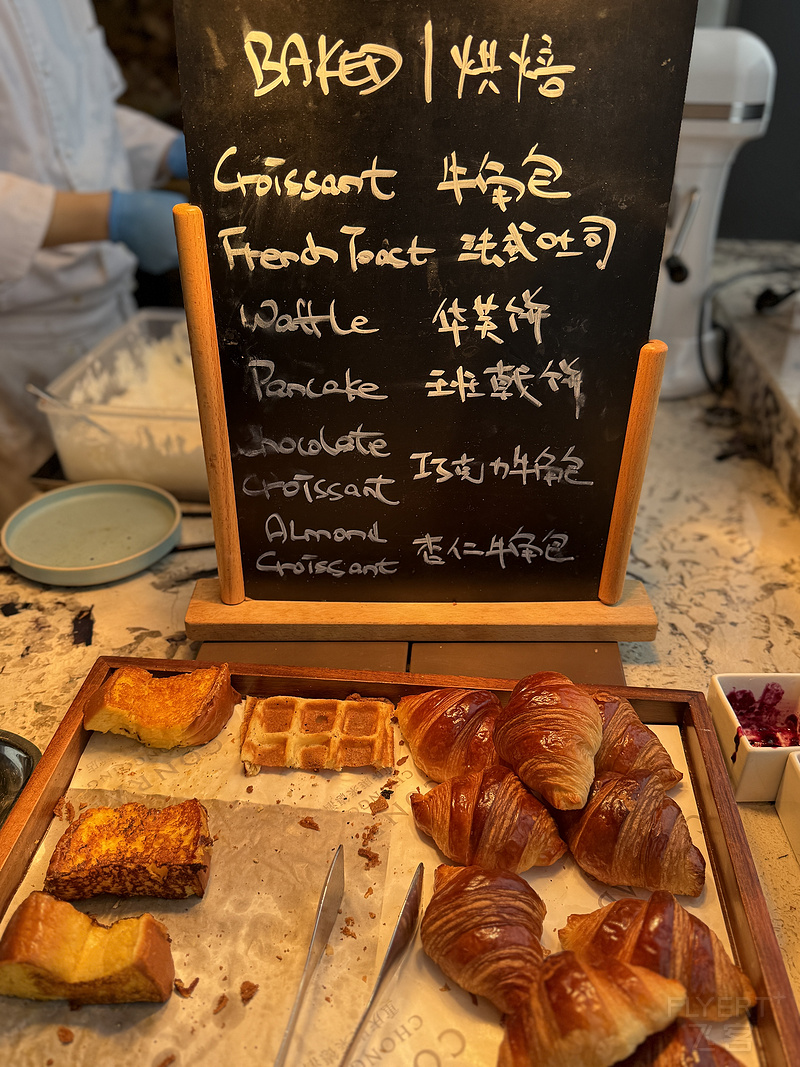 BAKED | 烘焙
Croissant 牛角包
French Toast 法式吐司
Waffle 华芙饼
Pancake 班戟饼
Chocolate
Croissant 巧克力牛角包
Almond
Croissant 杏仁牛角包
CONRA
CHONG
CO
FLYERT
飞客